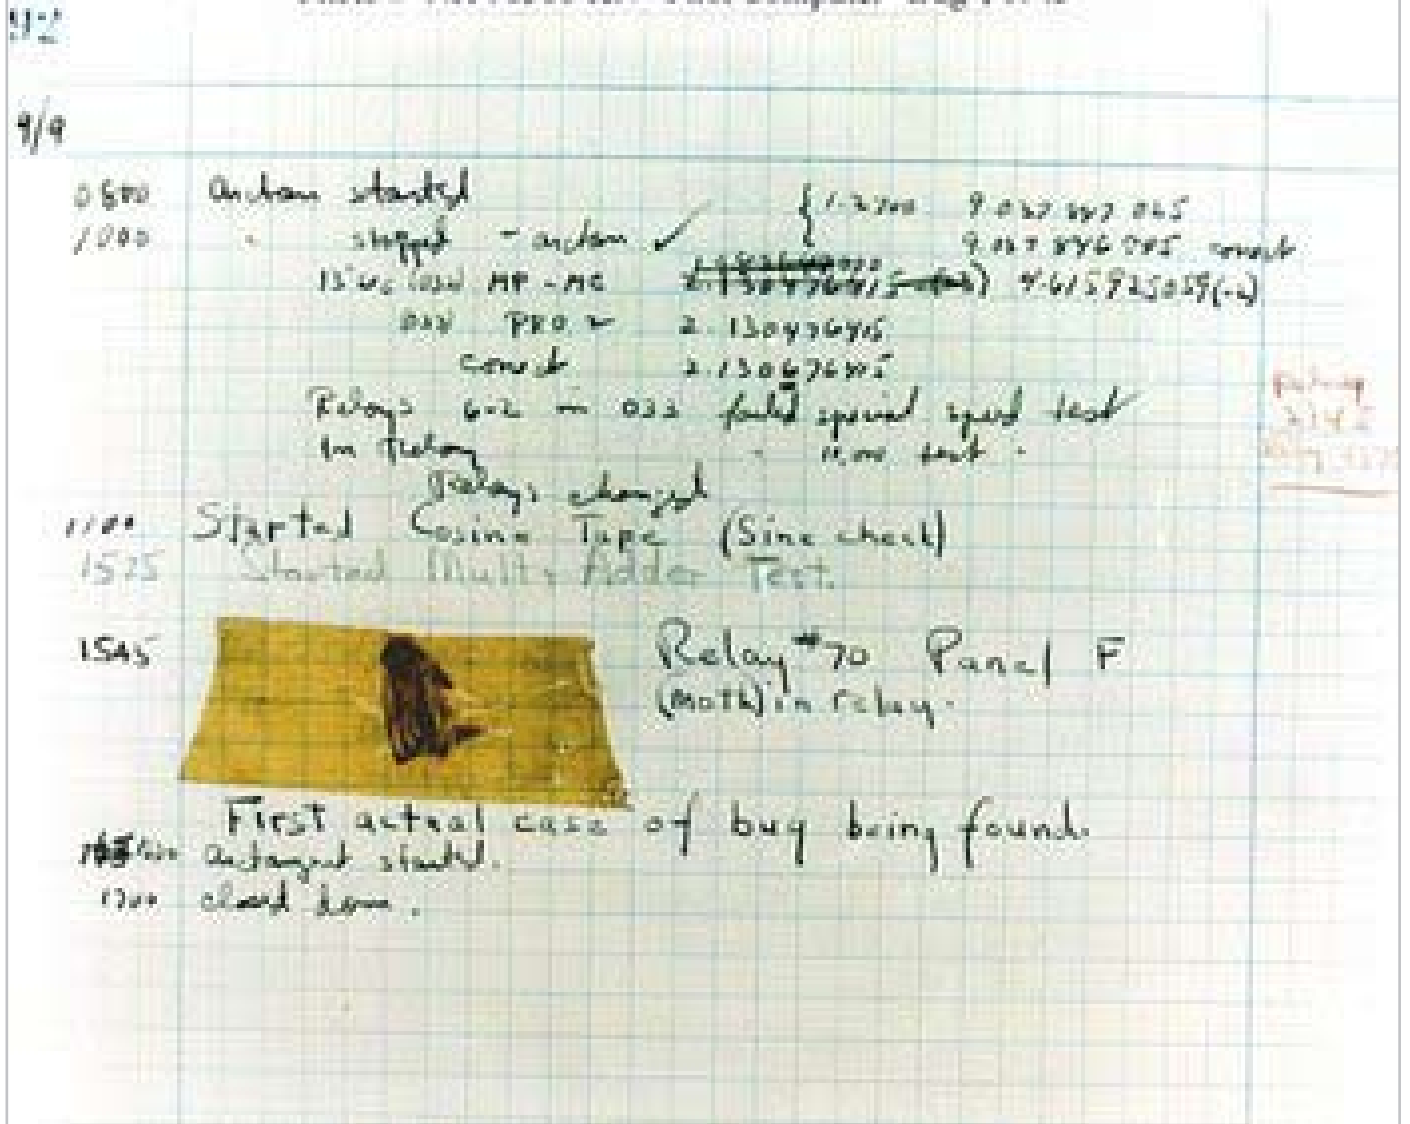 92
9/9
0800 Antan started
1000 " stopped - antan ✓ { 1.2700 9.037 847 025
9.037 846 995 correct
13"uc (032) MP - MC 4.615925059(-2)
033 PRO 2 2.130476415
correct 2.130676415
Relays 6-2 in 033 failed special speed test
In Relay " test .
Relays changed
1100 Started Cosine Tape (Sine check)
1525 Started Mult + Adder Test.
1545 Relay #70 Panel F
(Moth) in relay.
First actual case of bug being found.
antangent started.
1700 closed down.